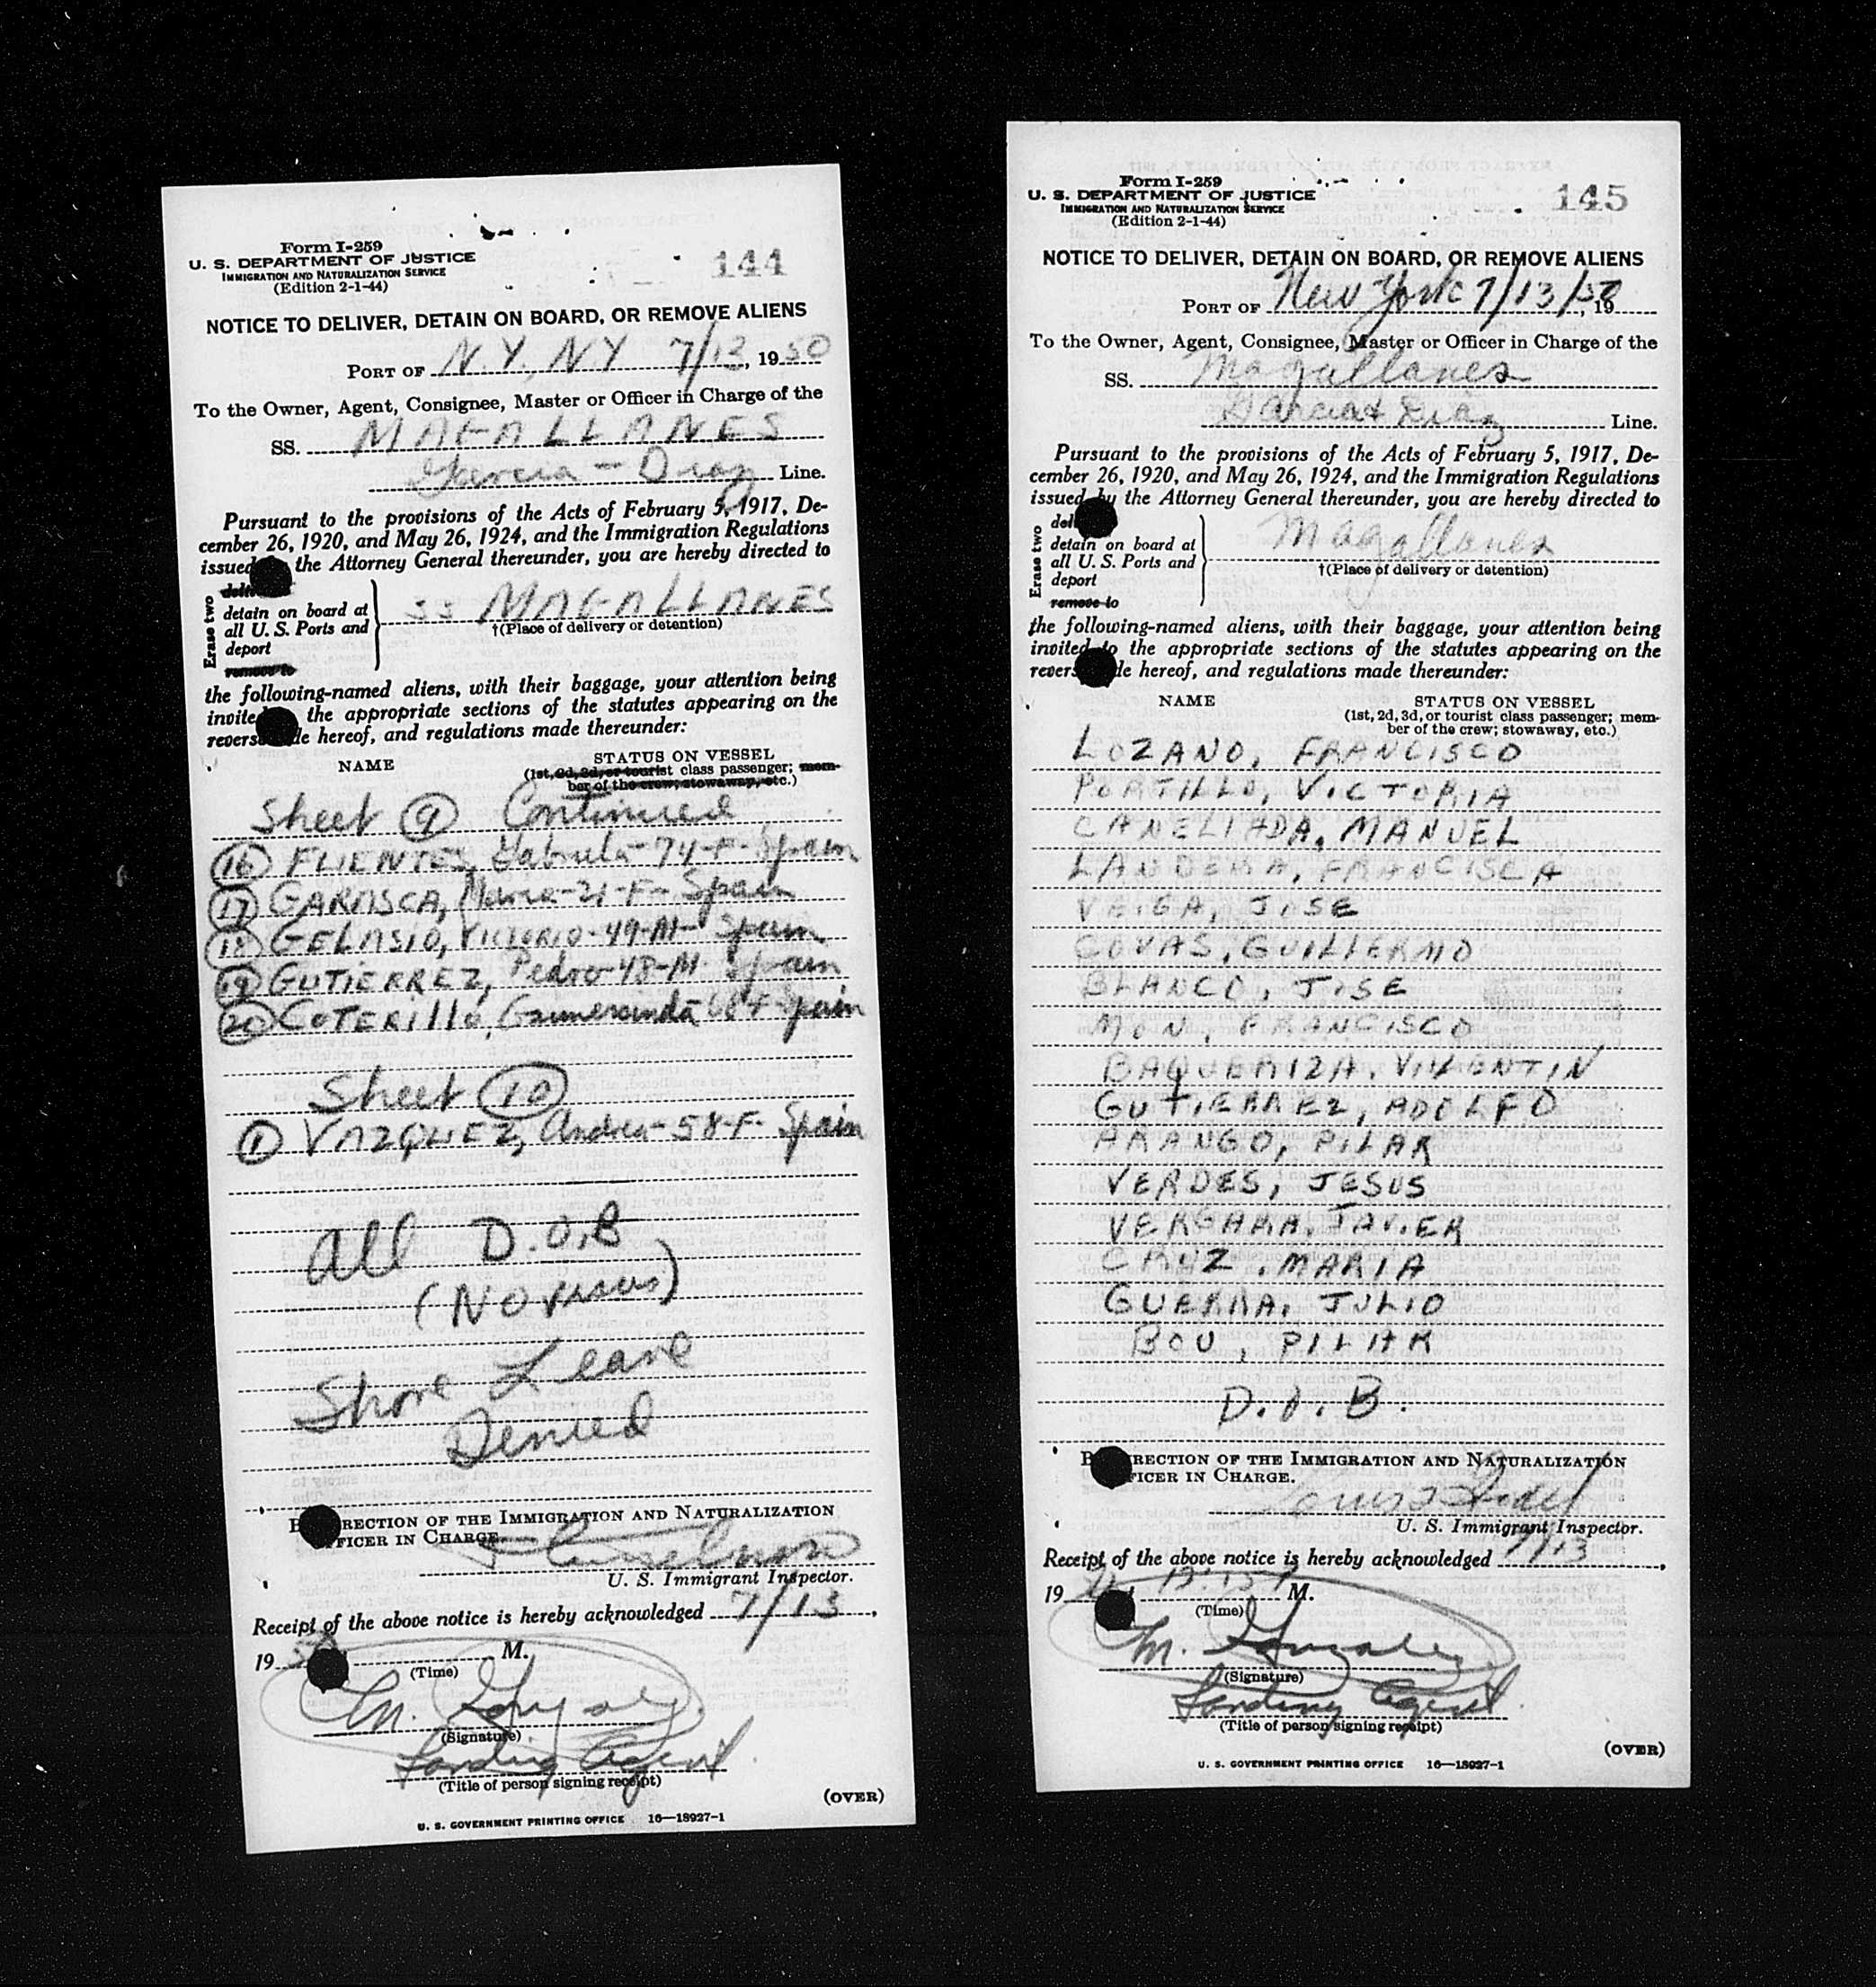 Form I-259
U. S. DEPARTMENT OF JUSTICE
IMMIGRATION AND NATURALIZATION SERVICE
(Edition 2-1-44)
144
NOTICE TO DELIVER, DETAIN ON BOARD, OR REMOVE ALIENS
PORT OF N.Y., NY 7/13, 1950
To the Owner, Agent, Consignee, Master or Officer in Charge of the
SS. MAGALLANES
Garcia - Diaz Line.
Pursuant to the provisions of the Acts of February 5, 1917, De-
cember 26, 1920, and May 26, 1924, and the Immigration Regulations
issued the Attorney General thereunder, you are hereby directed to
Erase two
detain on board at
all U. S. Ports and
deport
remove to
SS MAGALLANES
†(Place of delivery or detention)
the following-named aliens, with their baggage, your attention being
invite the appropriate sections of the statutes appearing on the
revers de hereof, and regulations made thereunder:
NAME
STATUS ON VESSEL
(1st, 2d, 3d, or tourist class passenger; mem-
ber of the crew; stowaway, etc.)
Sheet 9 Continued
16 FUENTES, Gabriela-74-F- Spain
17 GARASCA, Maria-21-F- Spain
18 GELASIO, VICTORIO-49-M- Spain
19 GUTIERREZ, Pedro-48-M- Spain
20 COTERILLO, 68 F Spain
Sheet 10
1 VAZQUEZ, Andrea-58-F- Spain
All D.O.B
(NO visas)
Shore Leave
Denied
B RECTION OF THE IMMIGRATION AND NATURALIZATION
FICER IN CHARGE.
U. S. Immigrant Inspector.
Receipt of the above notice is hereby acknowledged 7/13,
1950 M.
(Time)
M. Gonzalez
(Signature)
Landing Agent
(Title of person signing receipt)
(OVER)
U. S. GOVERNMENT PRINTING OFFICE 16—18927-1
Form I-259
U. S. DEPARTMENT OF JUSTICE
IMMIGRATION AND NATURALIZATION SERVICE
(Edition 2-1-44)
145
NOTICE TO DELIVER, DETAIN ON BOARD, OR REMOVE ALIENS
PORT OF New York 7/13/50, 19
To the Owner, Agent, Consignee, Master or Officer in Charge of the
SS. Magallanes
Garcia & Diaz Line.
Pursuant to the provisions of the Acts of February 5, 1917, De-
cember 26, 1920, and May 26, 1924, and the Immigration Regulations
issued by the Attorney General thereunder, you are hereby directed to
Erase two
del
detain on board at
all U. S. Ports and
deport
remove to
Magallanes
†(Place of delivery or detention)
the following-named aliens, with their baggage, your attention being
invited to the appropriate sections of the statutes appearing on the
revers de hereof, and regulations made thereunder:
NAME
STATUS ON VESSEL
(1st, 2d, 3d, or tourist class passenger; mem-
ber of the crew; stowaway, etc.)
LOZANO, FRANCISCO
PORTILLO, VICTORIA
CANELLADA, MANUEL
LANDERA, FRANCISCA
VEIGA, JOSE
COVAS, GUILLERMO
BLANCO, JOSE
MON, FRANCISCO
BAQUERIZA, VALENTIN
GUTIERREZ, ADOLFO
ARANGO, PILAR
VERDES, JESUS
VERGARA, JAVIER
CRUZ, MARIA
GUERRA, JULIO
BOU, PILAR
D.O.B.
B RECTION OF THE IMMIGRATION AND NATURALIZATION
FICER IN CHARGE.
U. S. Immigrant Inspector.
Receipt of the above notice is hereby acknowledged 7/13,
19 M.
(Time)
M. Gonzalez
(Signature)
Landing Agent.
(Title of person signing receipt)
(OVER)
U. S. GOVERNMENT PRINTING OFFICE 16—18927-1